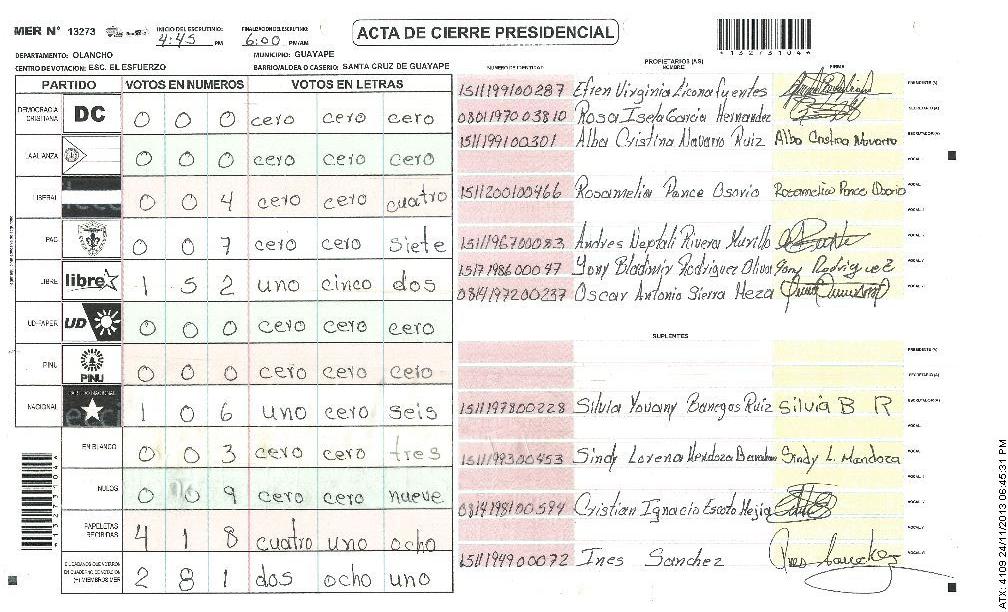 MER N° 13273 INICIO DEL ESCRUTINIO: 4:45 PM FINALIZACION ESCRUTINIO: 6:00 PM/AM ACTA DE CIERRE PRESIDENCIAL *13273104*
DEPARTAMENTO: OLANCHO MUNICIPIO: GUAYAPE
CENTRO DE VOTACION: ESC. EL ESFUERZO BARRIO/ALDEA O CASERIO: SANTA CRUZ DE GUAYAPE
PARTIDO VOTOS EN NUMEROS VOTOS EN LETRAS
DEMOCRACIA CRISTIANA DC 0 0 0 cero cero cero
LA ALIANZA 0 0 0 cero cero cero
LIBERAL 0 0 4 cero cero cuatro
PAC 0 0 7 cero cero siete
LIBRE libre 1 5 2 uno cinco dos
UD-FAPER UD 0 0 0 cero cero cero
PINU PINU 0 0 0 cero cero cero
NACIONAL 1 0 6 uno cero seis
EN BLANCO 0 0 3 cero cero tres
NULOS 0 0 9 cero cero nueve
PAPELETAS RECIBIDAS 4 1 8 cuatro uno ocho
CIUDADANOS QUE VOTARON EN CUADERNO DE VOTACION (+) MIEMBROS MER 2 8 1 dos ocho uno
*13273104*
PROPIETARIOS (AS)
NUMERO DE IDENTIDAD NOMBRE FIRMA
1511199100287 Efren Virginia Licona fuentes PRESIDENTE (A)
0801197003810 Rosa Isela Garcia Hernandez SECRETARIO (A)
1511199100301 Alba Cristina Navarro Ruiz Alba Cristina Navarro ESCRUTADOR (A)
VOCAL
1511200100466 Rosamelia Ponce Osorio Rosamelia Ponce Osorio VOCAL
VOCAL
1511196700083 Andres Neptali Rivera Murillo VOCAL
1517198600047 Yony Bladimir Rodriguez Oliva Yony Rodriguez VOCAL
0814197200237 Oscar Antonio Sierra Meza VOCAL
SUPLENTES
PRESIDENTE (A)
SECRETARIO (A)
1511197800228 Silvia Yovany Banegas Ruiz Silvia B R ESCRUTADOR (A)
VOCAL
1511199300453 Sindy Lorena Mendoza Sindy L. Mendoza VOCAL
VOCAL
0814198100594 Cristian Ignacio Escoto Mejia VOCAL
1511194900072 Ines Sanchez Ines Sanchez VOCAL
ATX: 4109 24/11/2013 06:45:31 PM